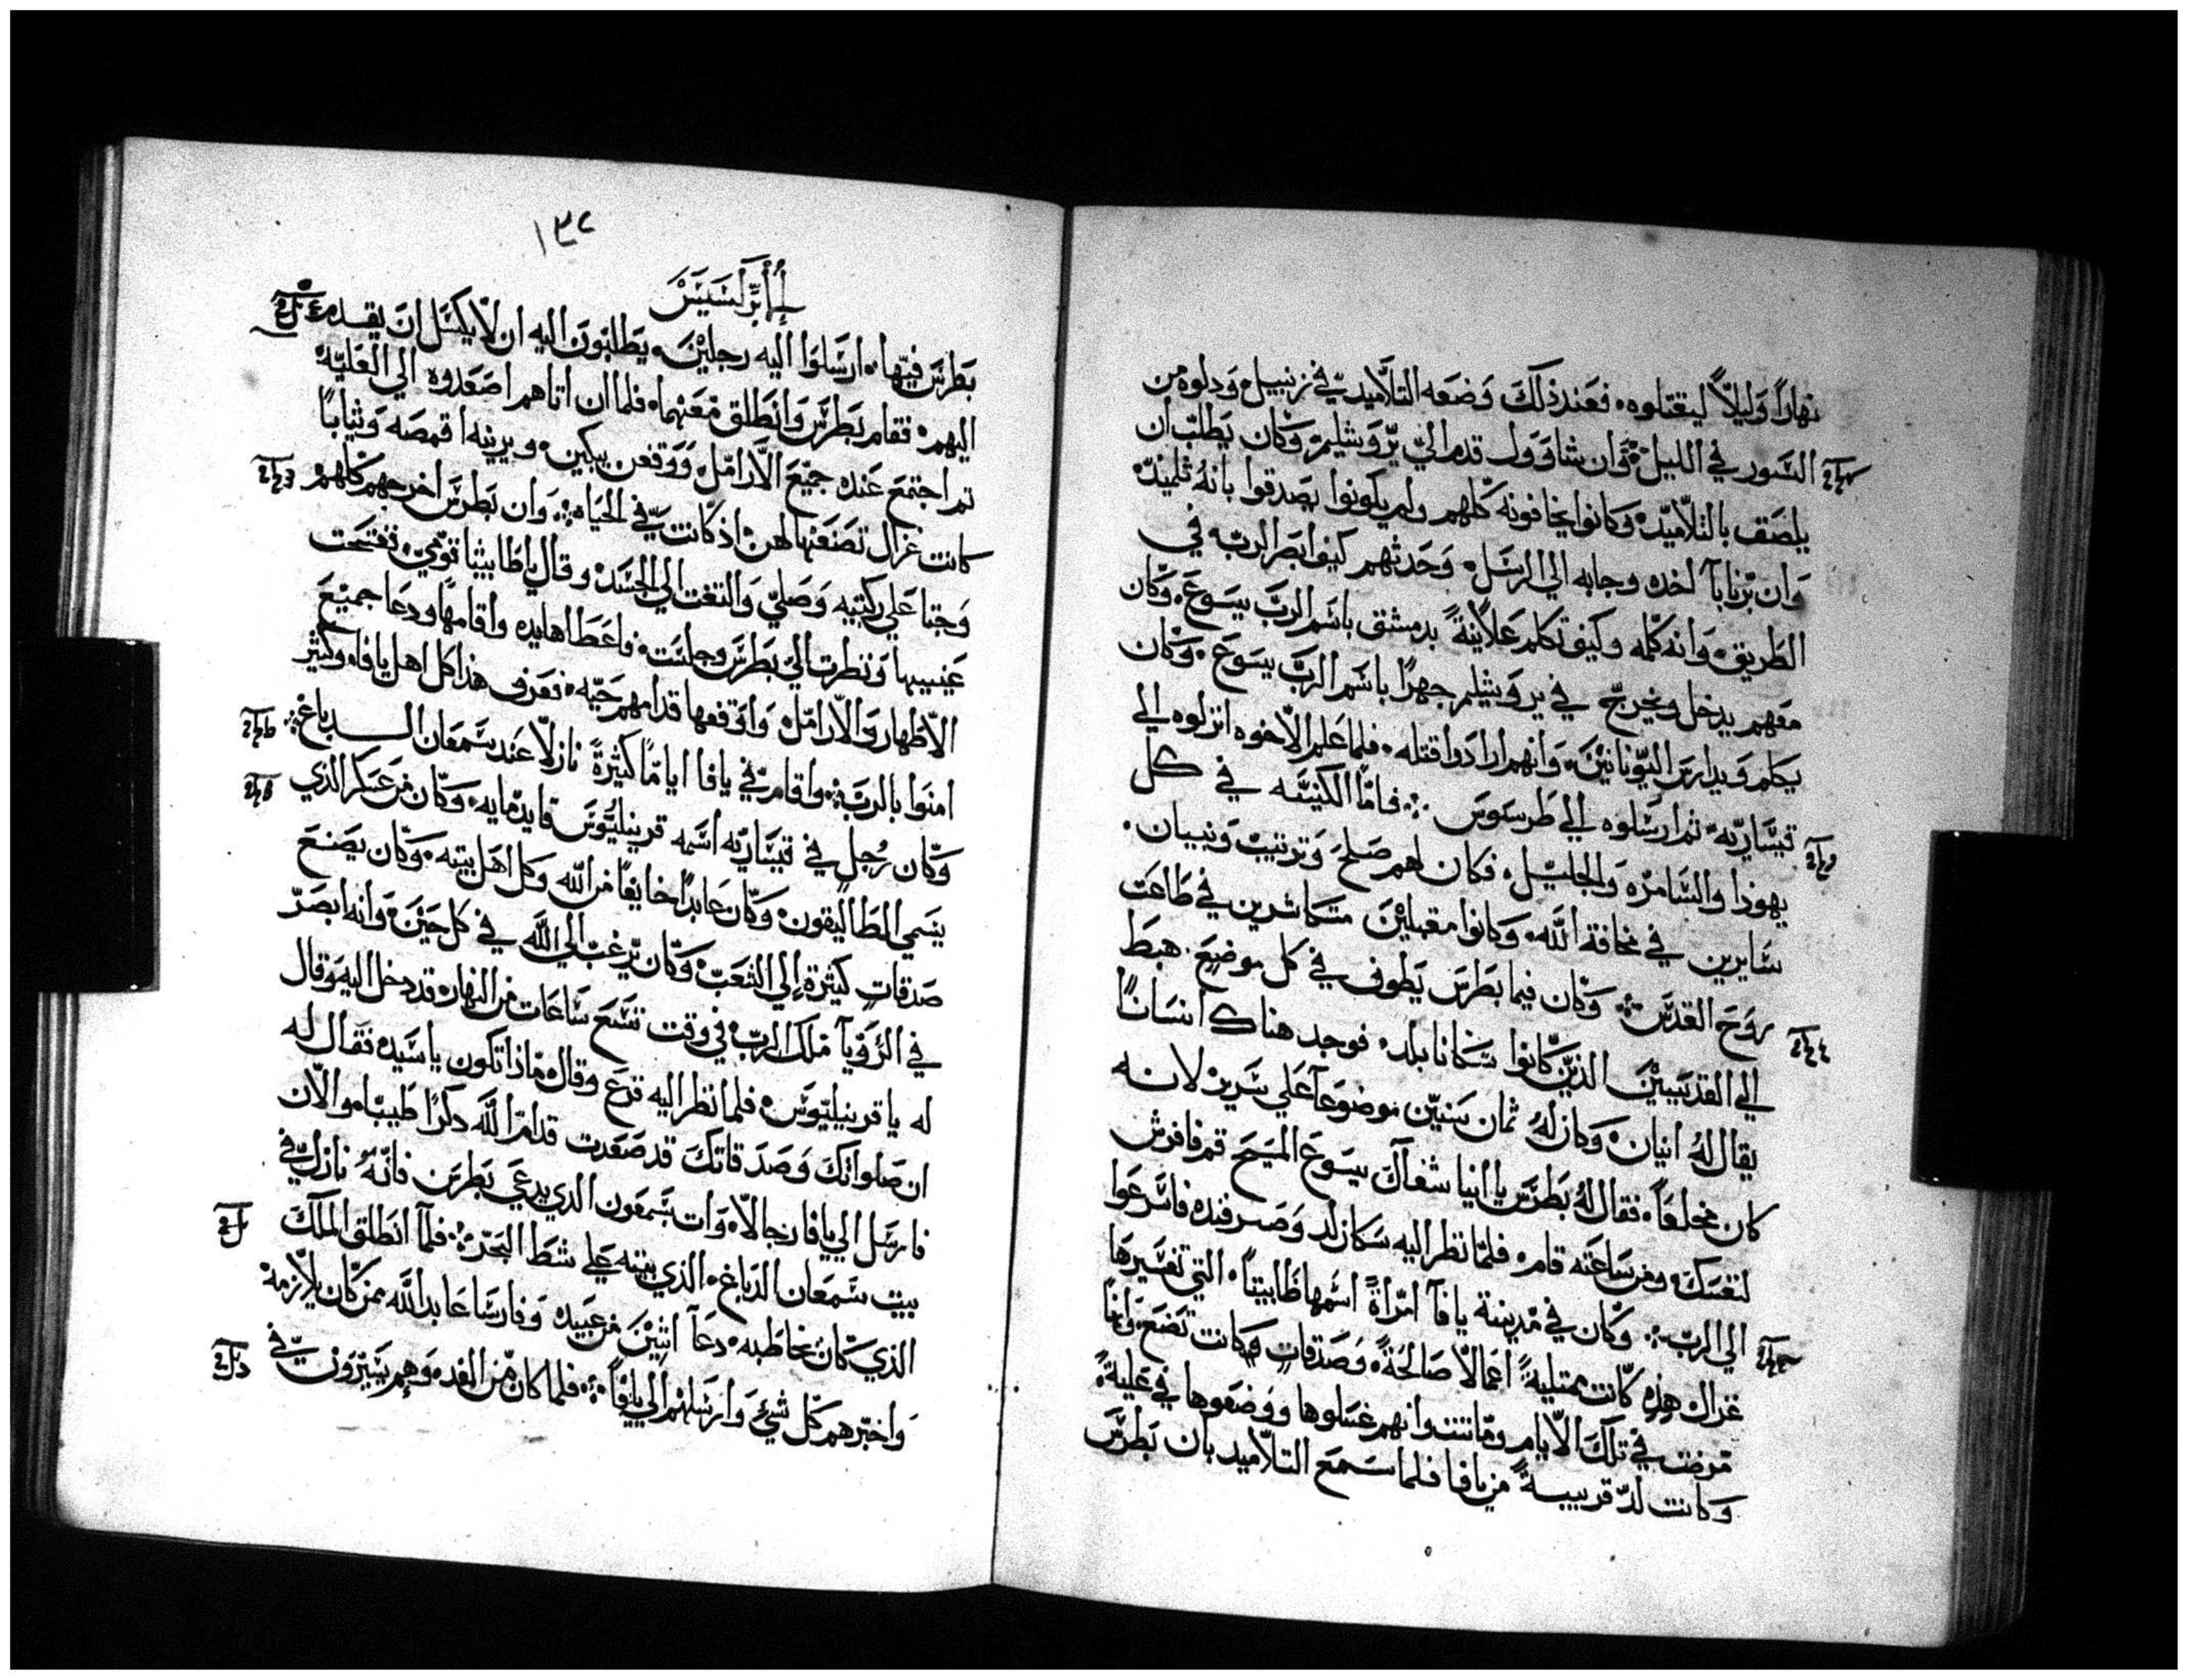 نهاراً وليلاً ليقتلوه. فعند ذلك وضعه التلاميد في زنبيل ودلوه من
السور في الليل. وان شاوول قدم الي يروشليم وكان يطلب ان
يلصق بالتلاميد وكانوا يخافونه كلهم ولم يكونوا يصدقوا بانه تلميد
وان برنابا اخده وجابه الي الرسل. وحدثهم كيف ابصر الرب في
الطريق. وانه كلمه وكيف تكلم علانية بدمشق باسم الرب يسوع. وكان
معهم يدخل ويخرج في يروشليم جهرًا باسم الرب يسوع. وكان
يكلم ويدارس اليونانيين. وانهم ارادوا قتله. فلما علم الاخوه انزلوه الي
قيساريه ثم ارسلوه الي طرسوس ؞ فاما الكنيسه في كل
يهوذا والسامره والجليل. فكان لهم صلح وترتيب وبنيان.
سايرين في مخافة الله. وكانوا مقبلين متكاثرين في طاعت
روح القدس ؞ وكان فيما بطرس يطوف في كل موضع. هبط
الي القديسين الذين كانوا سكانا بلد. فوجد هناك انسانًا
يقال له انيان. وكان له ثمان سنين موضوعا علي سرير لانه
كان مخلعاً. فقال له بطرس يا انيا شفاك يسوع المسيح قم فافرش
لنفسك. ومن ساعته قام. فلما نظر اليه سكان لد وصرفنده فاسرعوا
الي الرب ؞ وكان في مدينة يافا امراة اسمها ظابيتا. التي تفسيرها
غزال هذه كانت ممتلية اعمالا صالحة. وصدقات وكانت تضع وانها
مرضت في تلك الايام وماتت وانهم غسلوها ووضعوها في علية.
وكانت لد قريبة من يافا فلما سمع التلاميد بان بطرس
١٣٧
إأبركسيس
بطرس فيها. ارسلوا اليه رجلين. يطلبون اليه ان لا يكسل ان يقدم
اليهم. فقام بطرس وانطلق معهما. فلما ان اتاهم اصعدوه الي العليه
ثم اجتمع عنده جميع الارامل ووقفن يبكين. ويرينه اقمصه وثياباً
كانت غزال تصنعها لهن اذ كانت في الحياه ؞ وان بطرس اخرجهم كلهم
وجتا علي ركبتيه وصلي والتفت الي الجسد وقال يا طابيثا قومي. ففتحت
عينيها ونظرت الي بطرس وجلست. فاعطاها يده واقامها ودعا جميع
الاطهار والارامل واوقفها قدامهم حيه. فعرف هذا كل اهل يافا وكثير
امنوا بالرب ؞ واقام في يافا اياما كثيرة نازلا عند سمعان الدباغ ؞
وكان رجل في قيساريه اسمه قرينليوس قايد مايه. وكان من عسكر الذي
يسمي المطاليقون. وكان عابدا خايفا من الله وكل اهل بيته. وكان يصنع
صدقات كثيرة إلي الشعب. وكان يرغب الي الله في كل حين. وانه ابصر
في الرويآ ملك الرب في وقت تسع ساعات من النهار. قد دخل اليه وقال
له يا قرينيليوس. فلما نظر اليه فزع وقال ماذا تكون يا سيده فقال له
ان صلواتك وصدقاتك قد صعدت قدام الله دكرا طيبا. والان
فارسل الي يافا رجالا. وات بسمعون الدي يدعي بطرس فانه نازل في
بيت سمعان الدباغ. الذي بيته علي شط البحر. فلما انطلق الملك
الذي كان يخاطبه. دعا اثنين من عبيده وفارسا عابد الله ممن كان يلازمه
واخبرهم كل شيء وارسلهم الي يافا ؞ فلما كان من الغد وهم يسيرون في